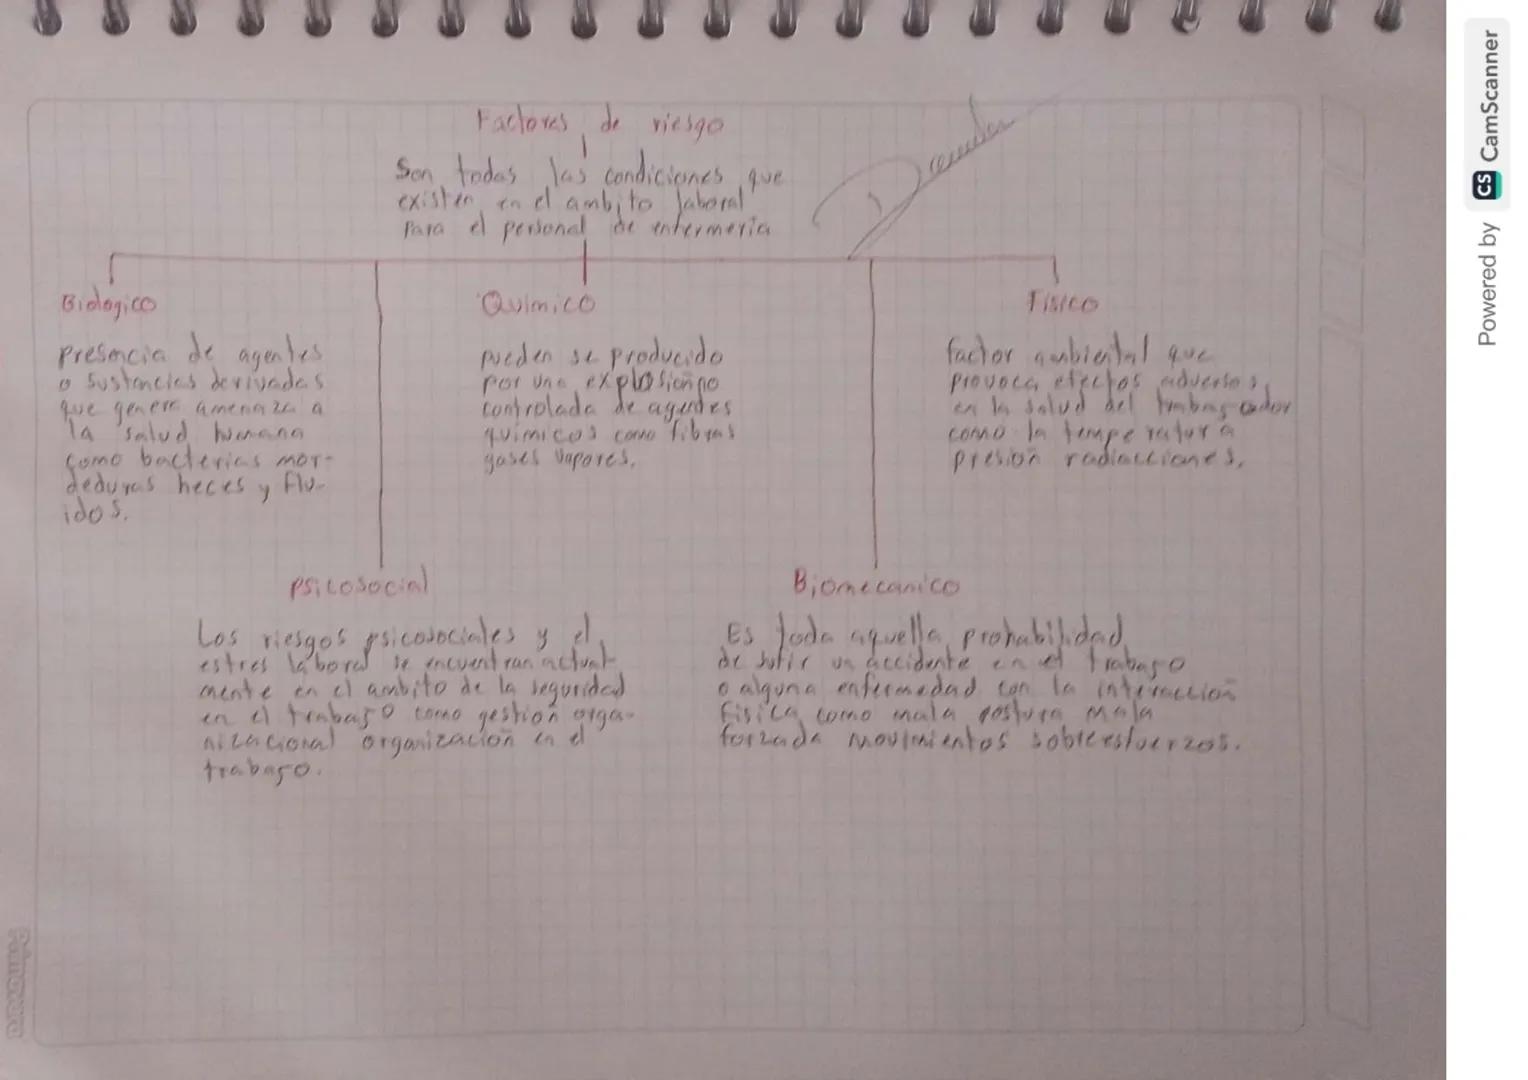 Factores de riesgo
Son todas las condiciones que
existen en el ambito laboral
para el personal de enfermeria
Biologico
presencia de agentes
o sustancias derivadas
que genera amenaza a
la salud humana
como bacterias mor-
deduras heces y flu-
idos.
Quimico
pueden se producido
por una explosion no
controlada de agentes
quimicos como fibras
gases vapores.
Fisico
factor ambiental que
provoca efectos adversos
en la salud del trabagador
como la temperatura
presion radiacciones.
psicosocial
Los riesgos psicosociales y el
estres laboral se encuentran actual
mente en el ambito de la seguridad
en el trabago como gestion orga-
nizacional organizacion en el
trabago.
Biomecanico
Es toda aquella probabilidad
de sufir un accidente en el trabago
o alguna enfermedad con la interaccion
fisica como mala postura mala
forzada movimientos sobreesfuerzos.
Primavera
Powered by CS CamScanner